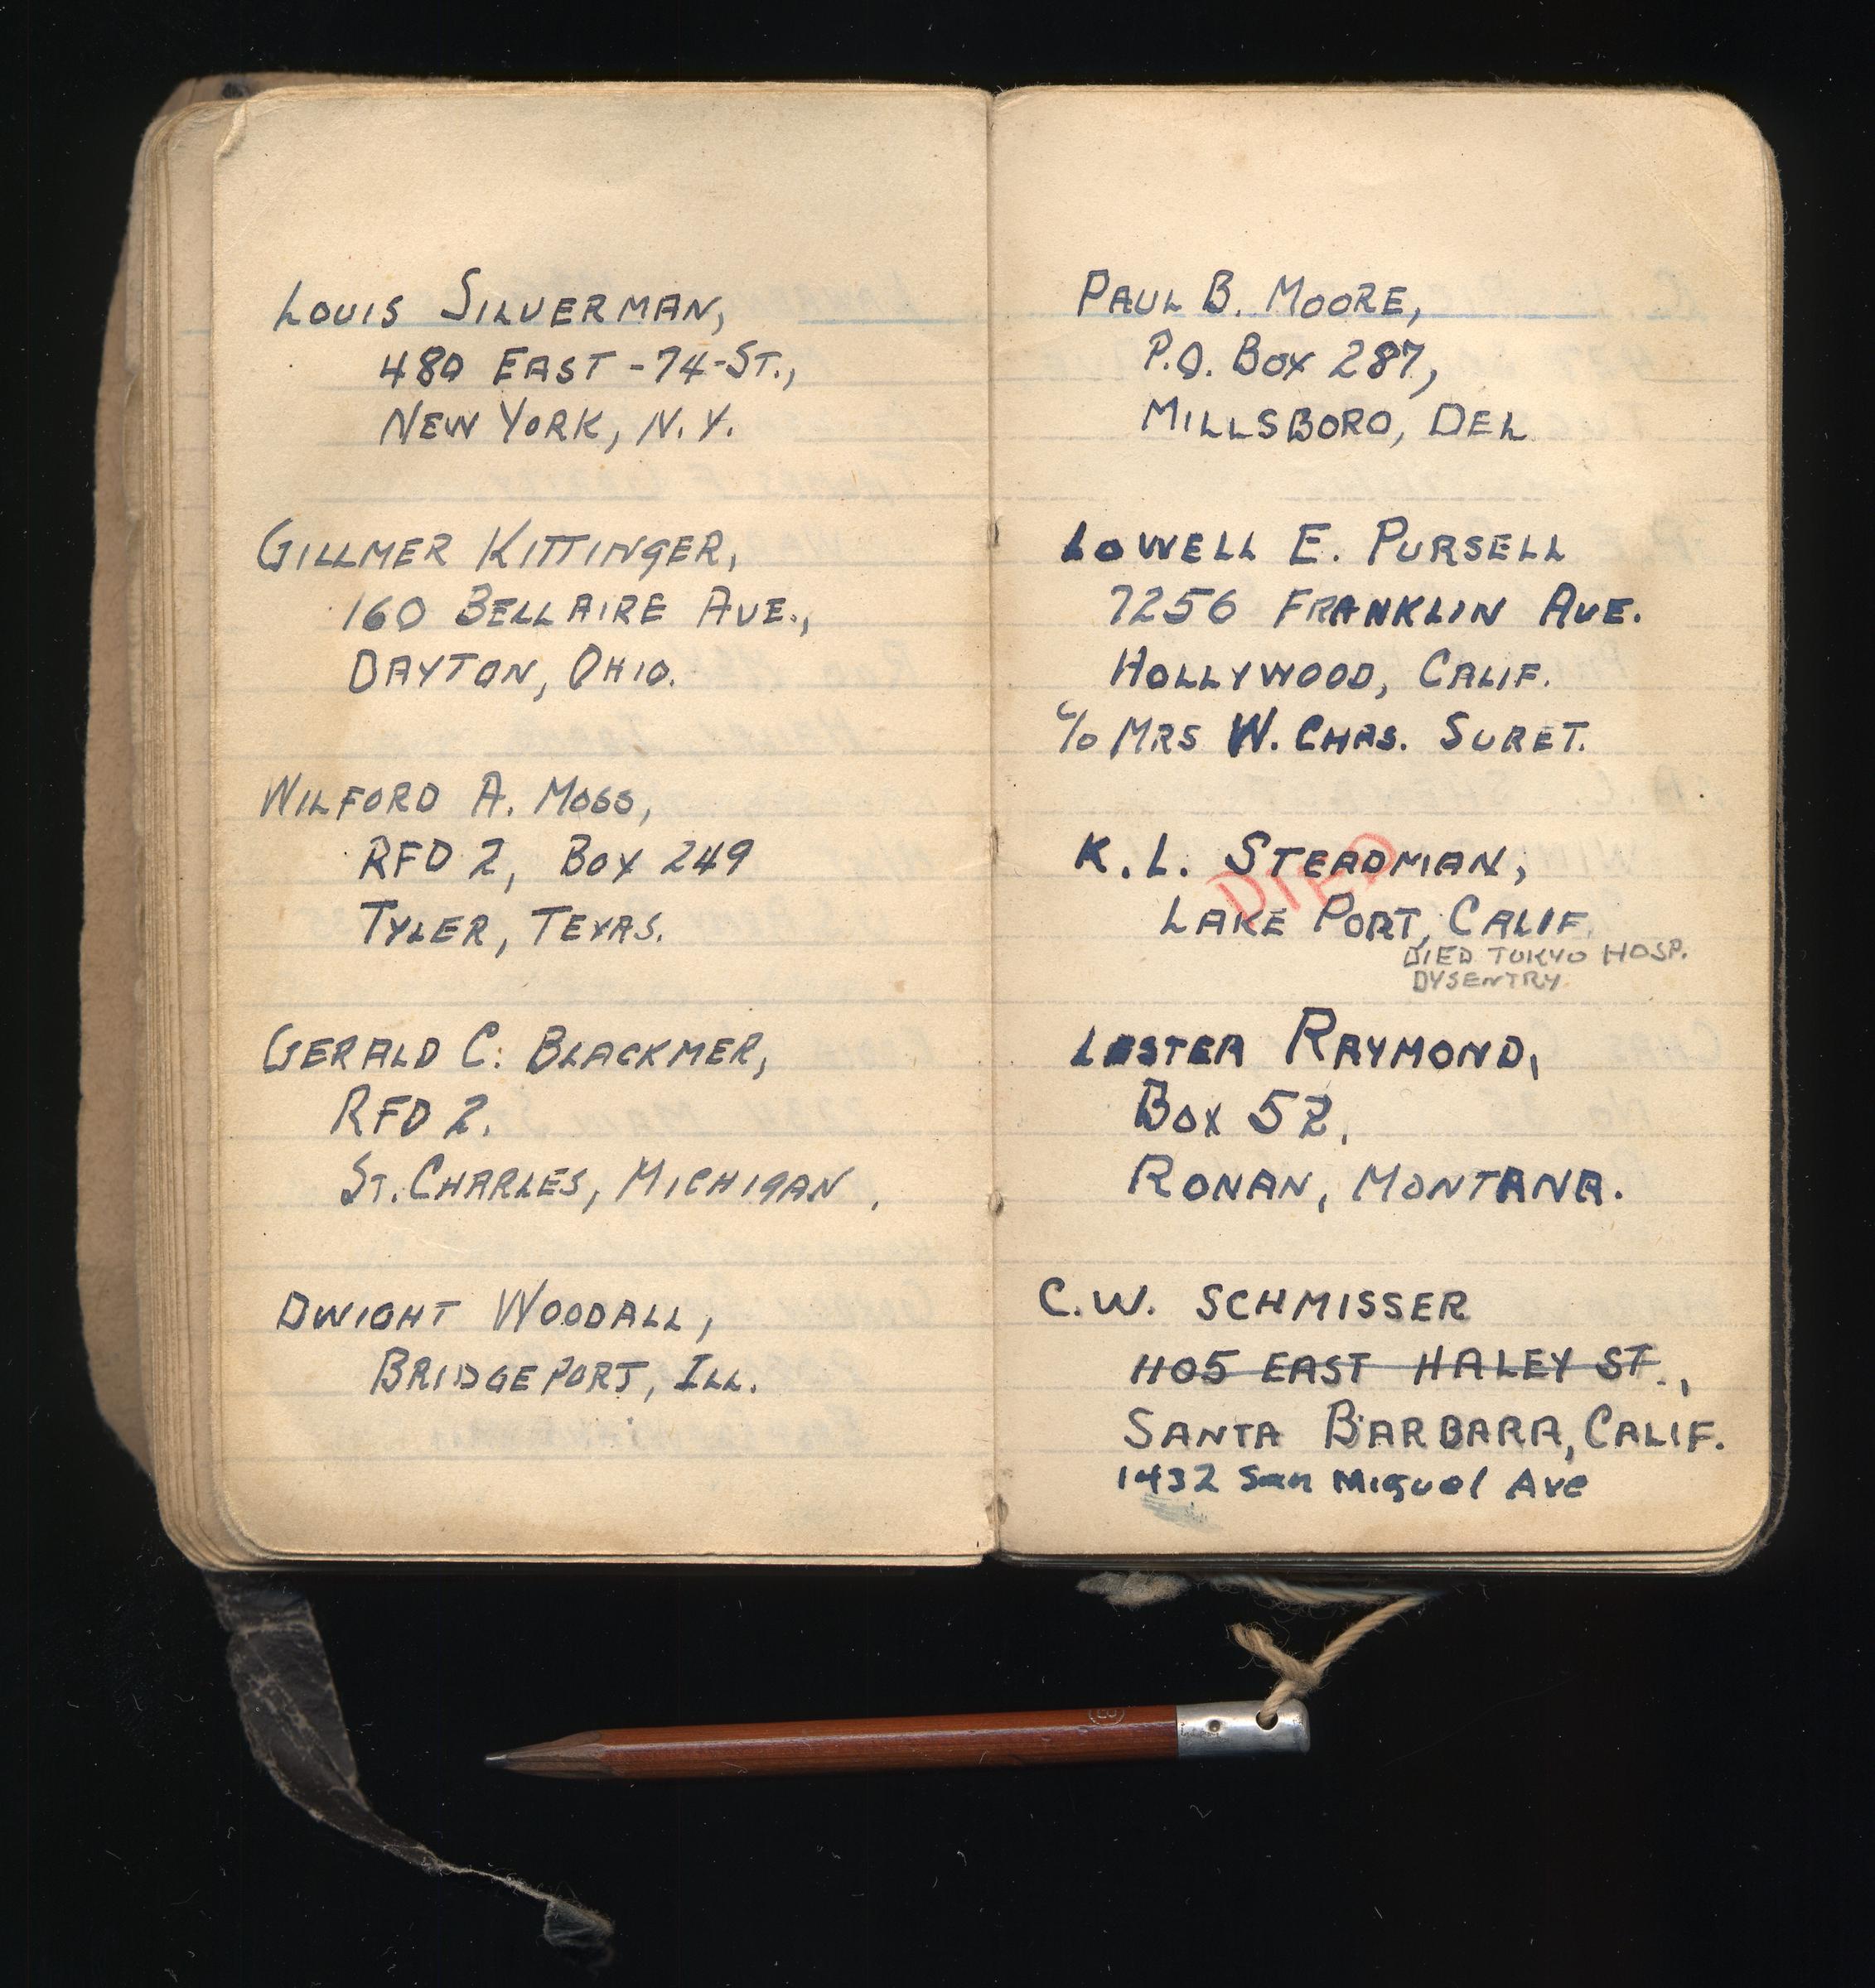 LOUIS SILVERMAN,
480 EAST -74-ST.,
NEW YORK, N.Y.
GILLMER KITTINGER,
160 BELLAIRE AVE.,
DAYTON, OHIO.
WILFORD A. MOSS,
RFD 2, BOX 249
TYLER, TEXAS.
GERALD C. BLACKMER,
RFD 2.
ST. CHARLES, MICHIGAN.
DWIGHT WOODALL,
BRIDGEPORT, ILL.
PAUL B. MOORE,
P.O. BOX 287,
MILLSBORO, DEL
LOWELL E. PURSELL
7256 FRANKLIN AVE.
HOLLYWOOD, CALIF.
c/o MRS W. CHAS. SURET.
K. L. STEADMAN,
DIED
LAKE PORT, CALIF.
DIED TOKYO HOSP.
DYSENTRY
LESTER RAYMOND,
BOX 52,
RONAN, MONTANA.
C.W. SCHMISSER
1105 EAST HALEY ST.,
SANTA BARBARA, CALIF.
1432 San Miguel Ave